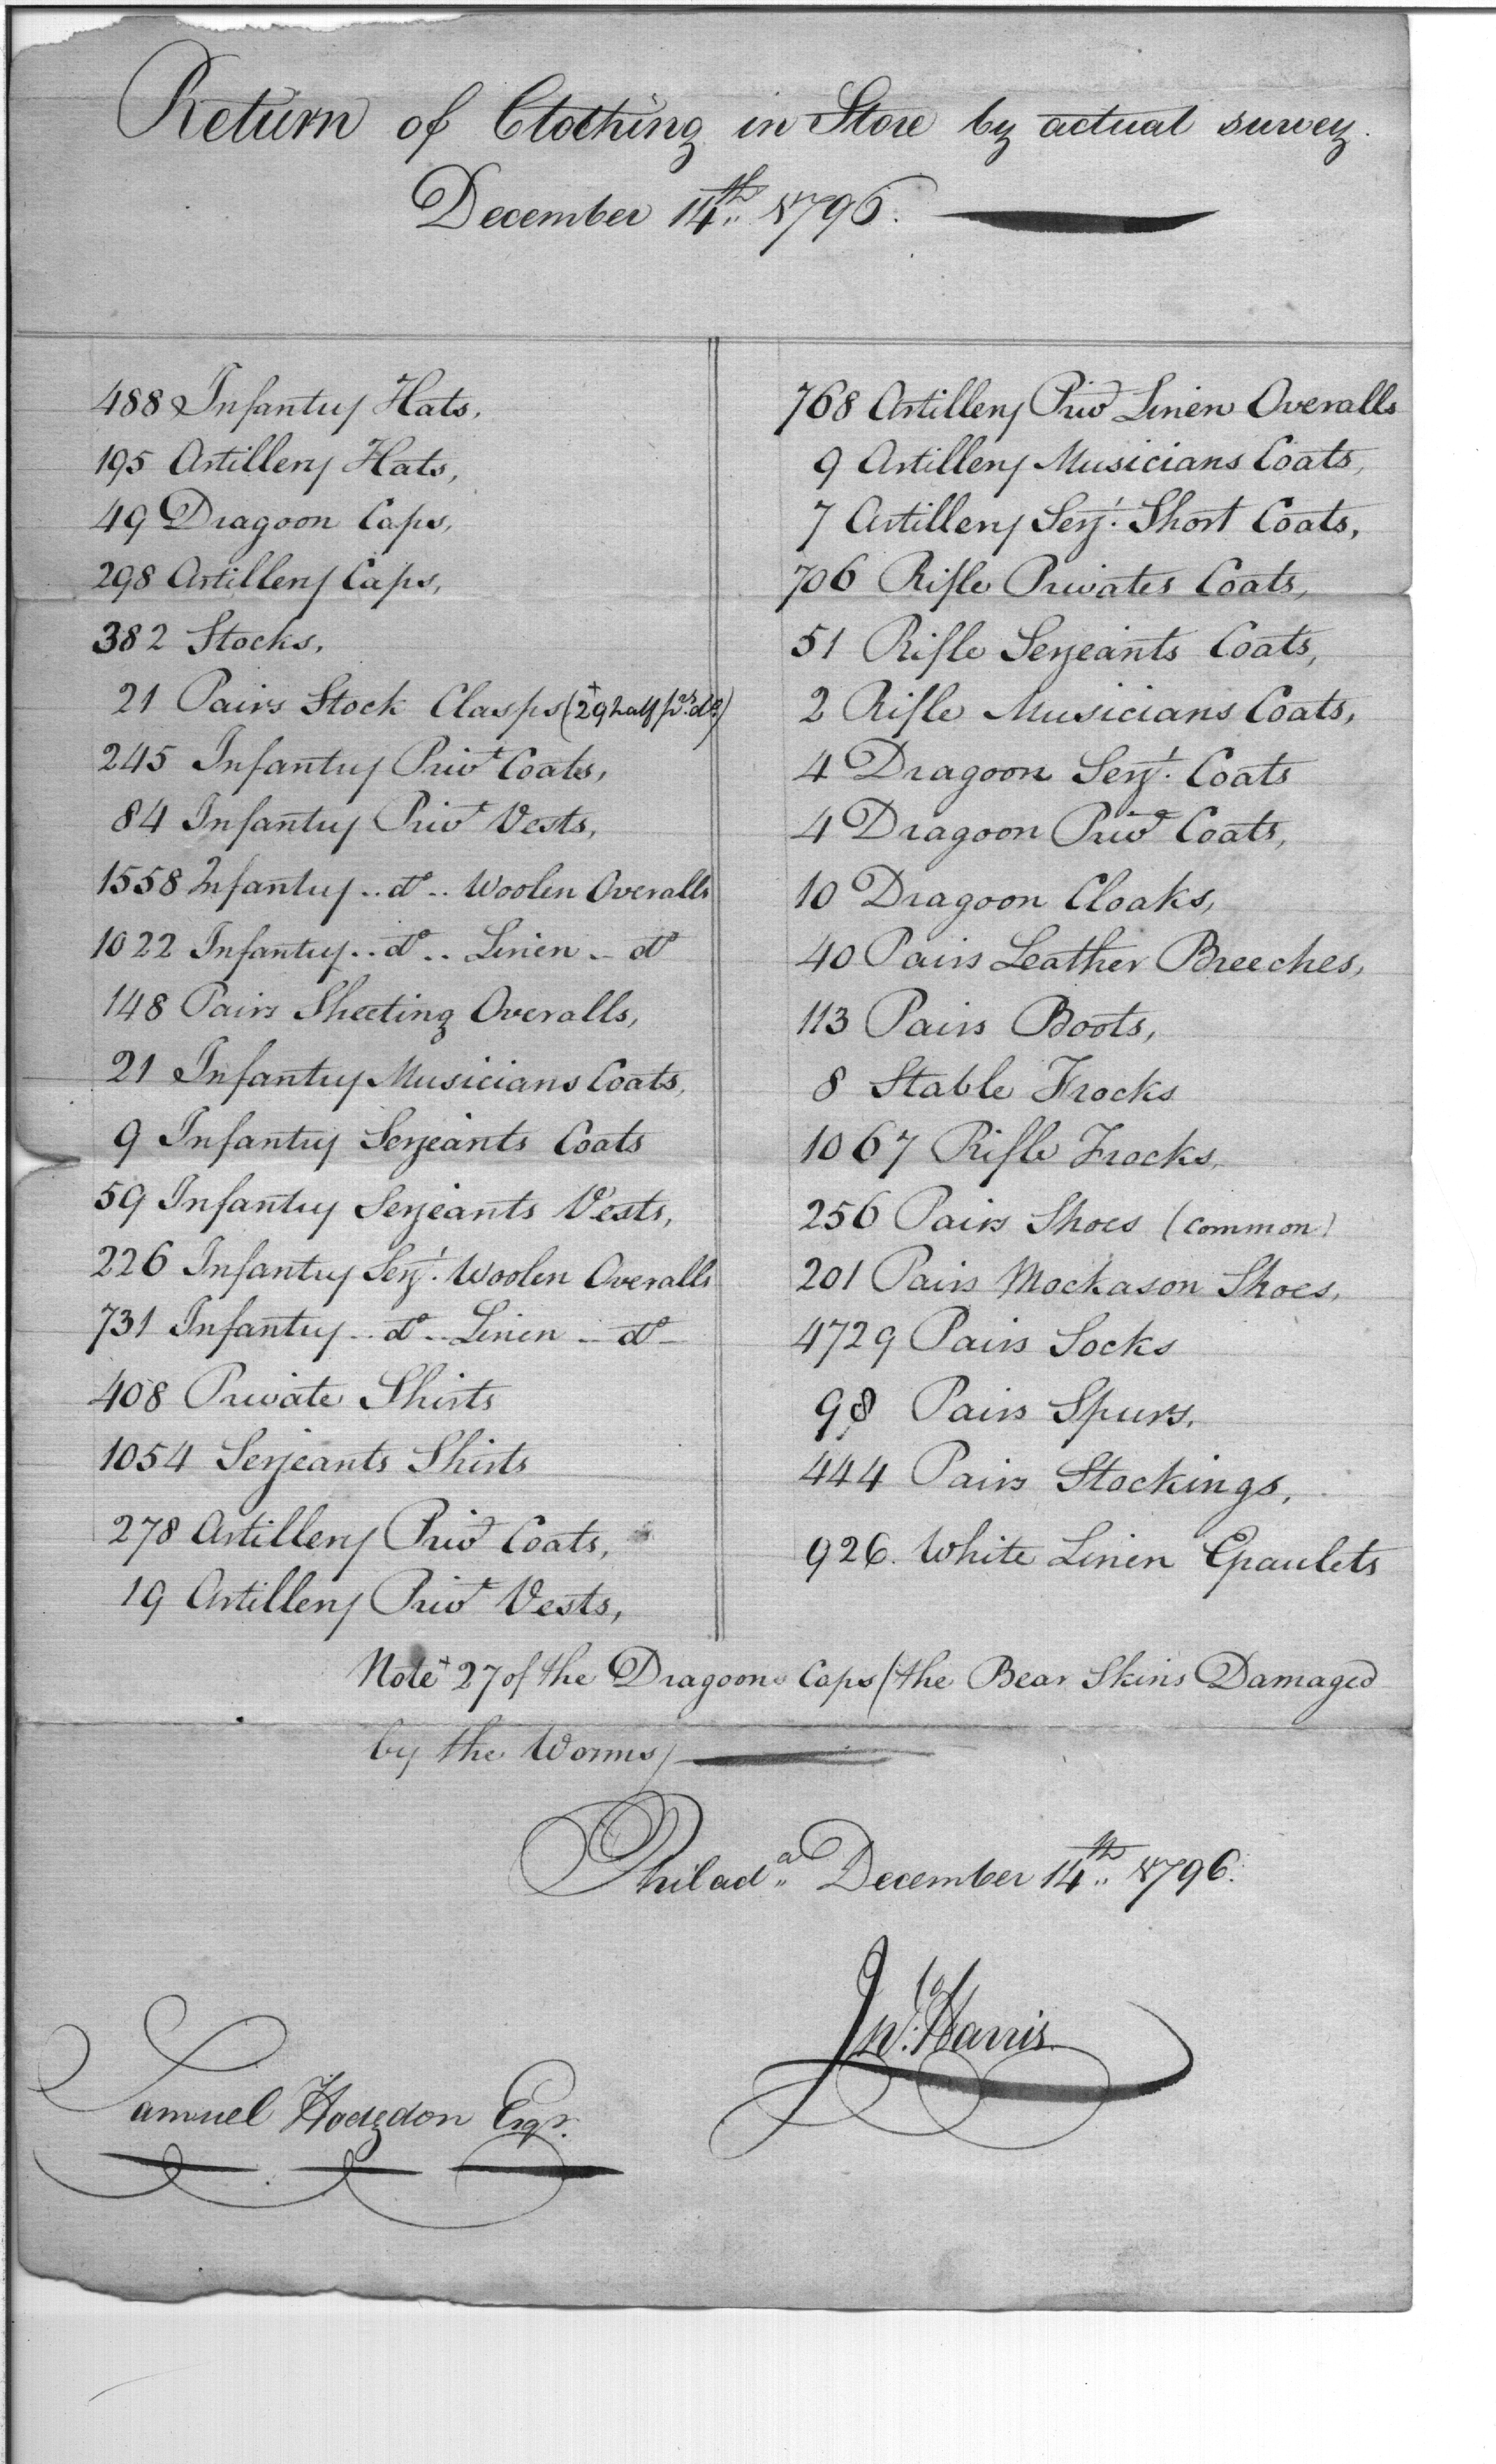 Return of Clothing in Store by actual survey.
December 14th 1796.
488 Infantry Hats,
195 Artillery Hats,
49 Dragoon Caps,
298 Artillery Caps,
382 Stocks,
21 Pairs Stock Clasps (+29 half prs. do)
245 Infantry Privt Coats,
84 Infantry Privt Vests,
1558 Infantry .. do .. Woolen Overalls
1022 Infantry .. do .. Linen .. do
148 Pairs Sheeting Overalls,
21 Infantry Musicians Coats,
9 Infantry Serjeants Coats
59 Infantry Serjeants Vests,
226 Infantry Serjt. Woolen Overalls
731 Infantry .. do .. Linen .. do
408 Private Shirts
1054 Serjeants Shirts
278 Artillery Privt Coats,
19 Artillery Privt Vests,
768 Artillery Privt Linen Overalls
9 Artillery Musicians Coats,
7 Artillery Serjt. Short Coats,
706 Rifle Privates Coats,
51 Rifle Serjeants Coats,
2 Rifle Musicians Coats,
4 Dragoon Serjt. Coats
4 Dragoon Privt Coats,
10 Dragoon Cloaks,
40 Pairs Leather Breeches,
113 Pairs Boots,
8 Stable Frocks
1067 Rifle Frocks,
256 Pairs Shoes (common)
201 Pairs Mockason Shoes,
4729 Pairs Socks
98 Pairs Spurs.
444 Pairs Stockings,
926. White Linen Epaulets
Note + 27 of the Dragoons Caps (the Bear Skins Damaged
by the Worms)
Philada December 14th 1796.
Jno. Harris
Samuel Hodgdon Esqr.